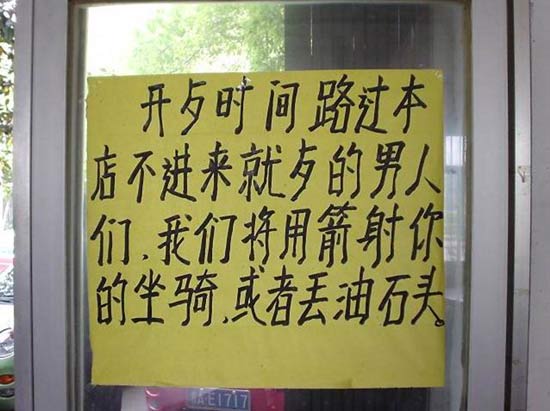 开歺时间路过本
店不进来就歺的男人
们、我们将用箭射你
的坐骑、或者丢油石头。
A·E1717